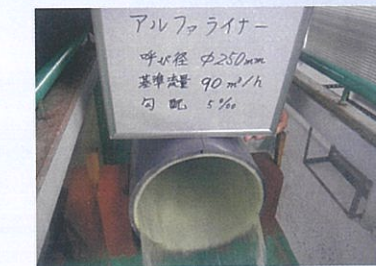 アルファライナー
呼び径 Φ250mm
基準流量 90m³/h
勾配 5‰